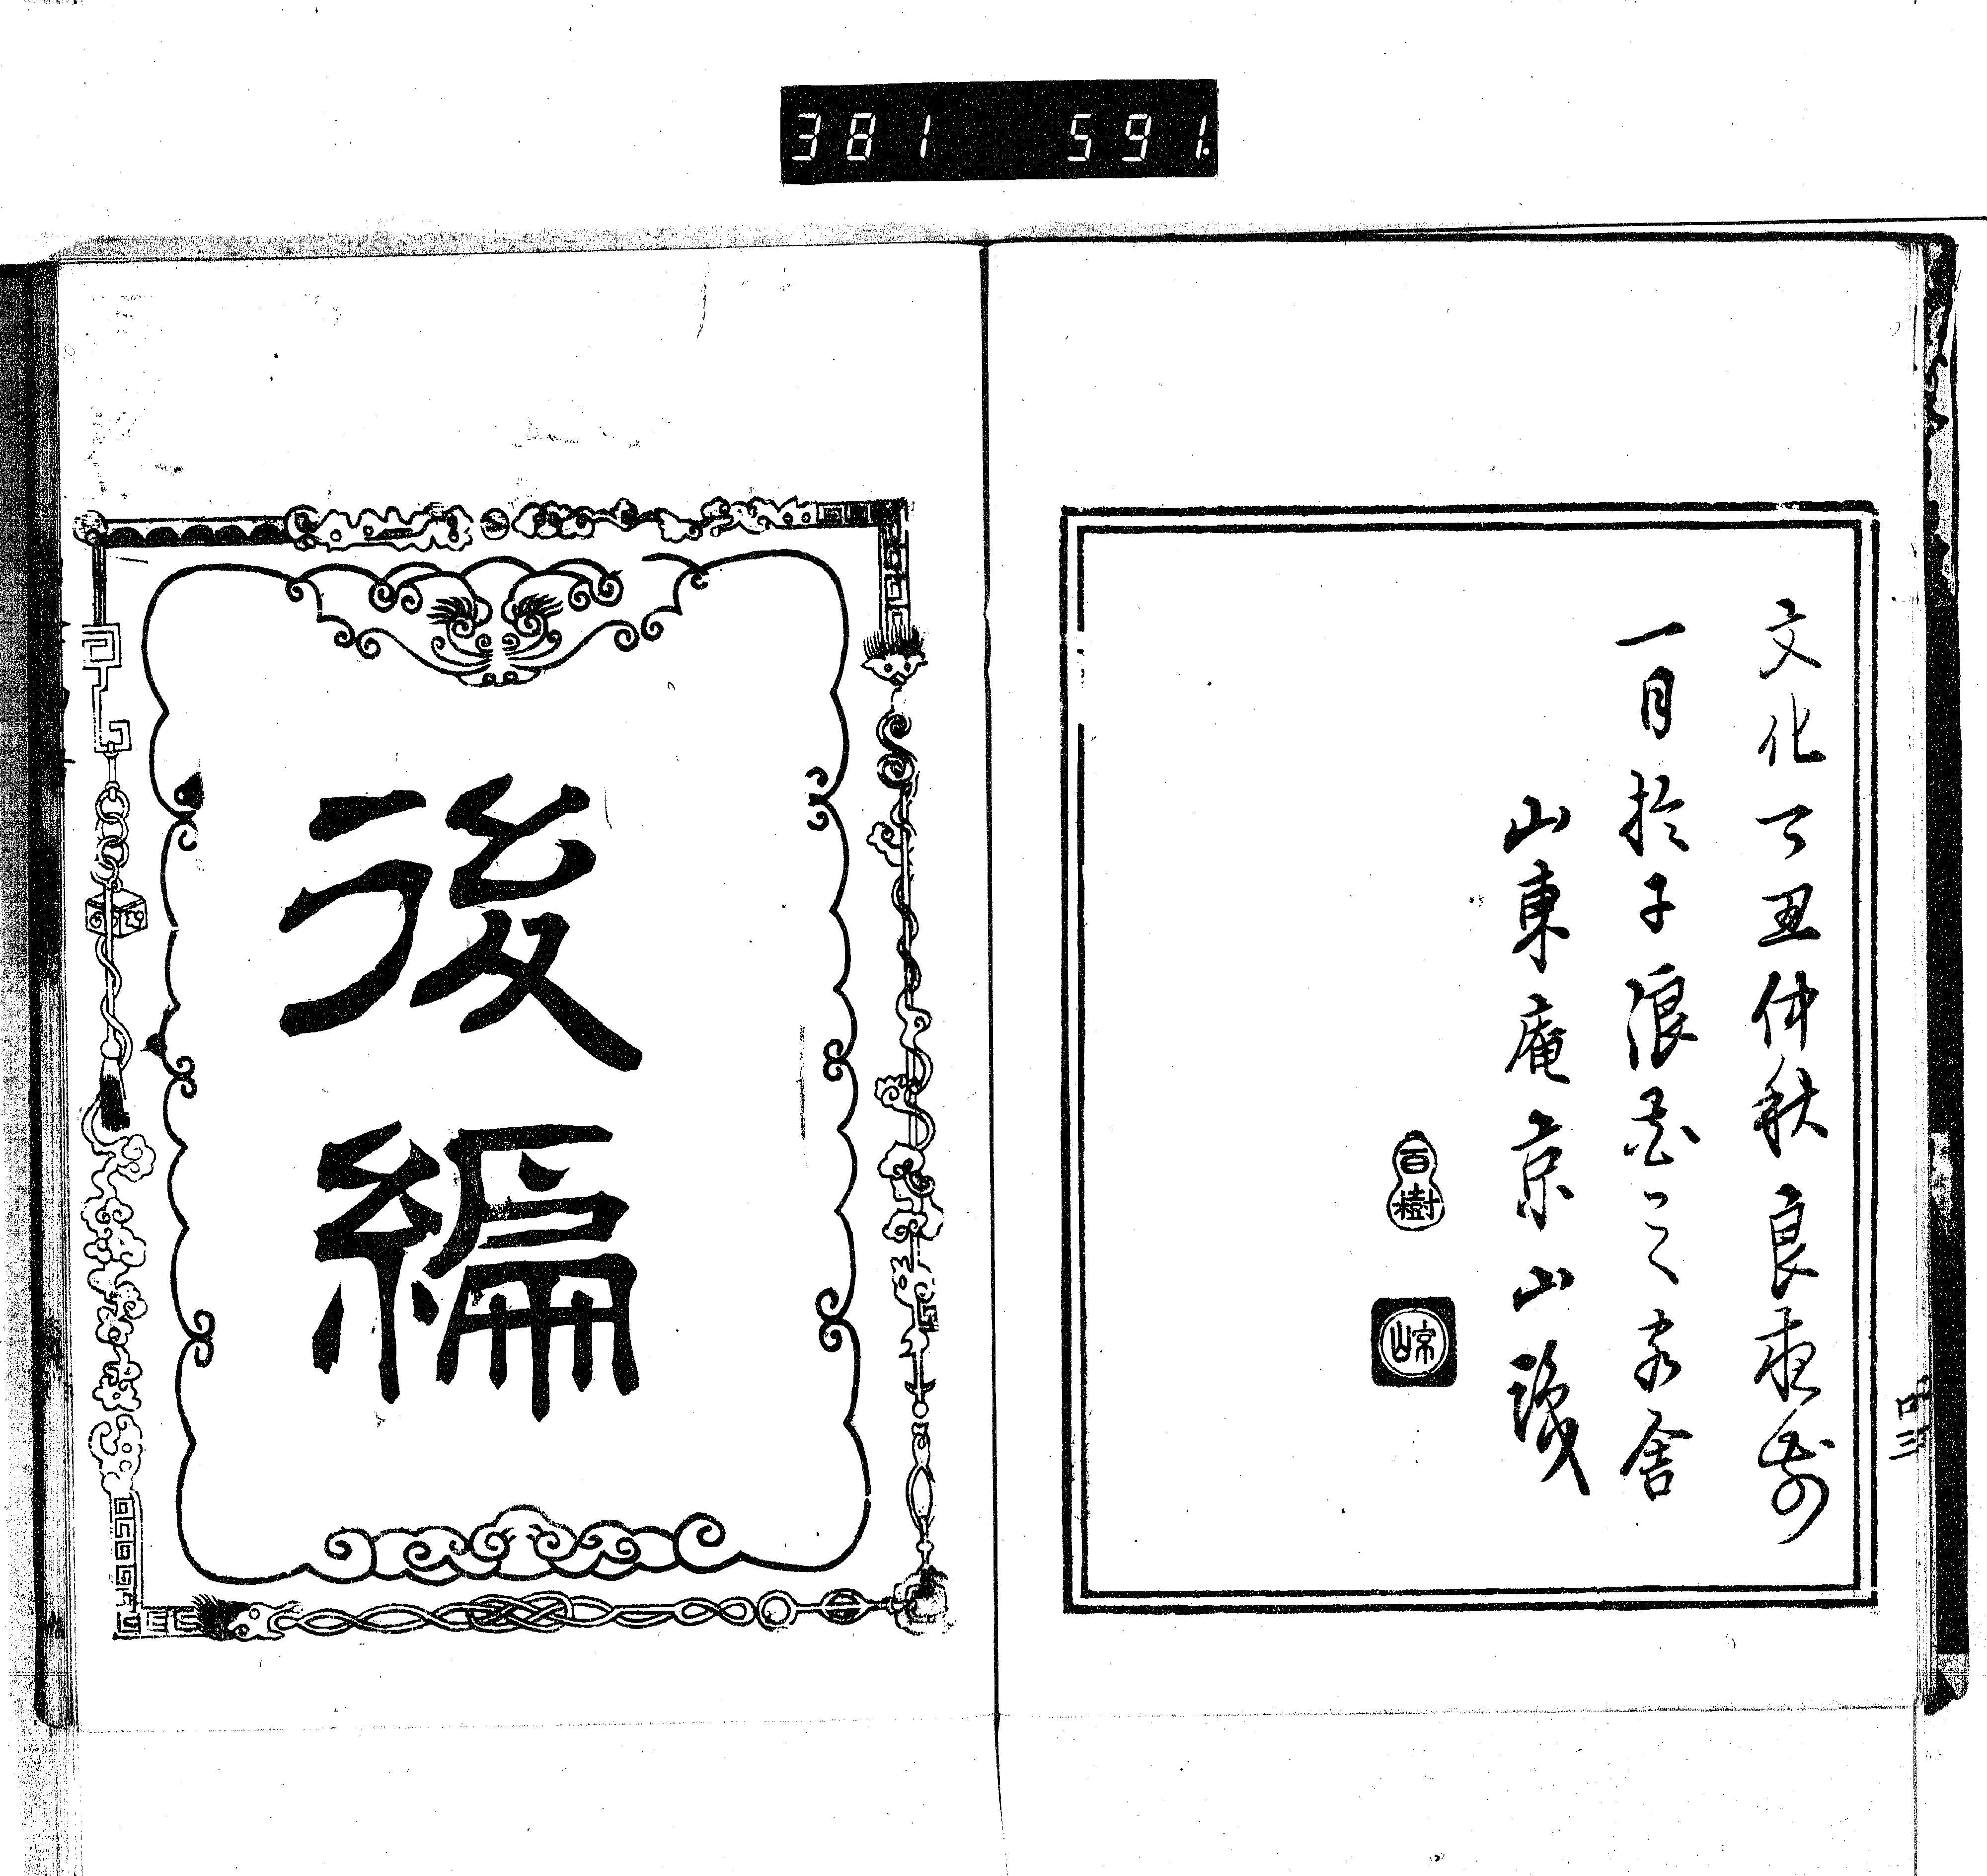 381 591.
文化丁丑仲秋良夜前
一月於于浪花之客舎
山東庵京山識
百樹
京山
後編